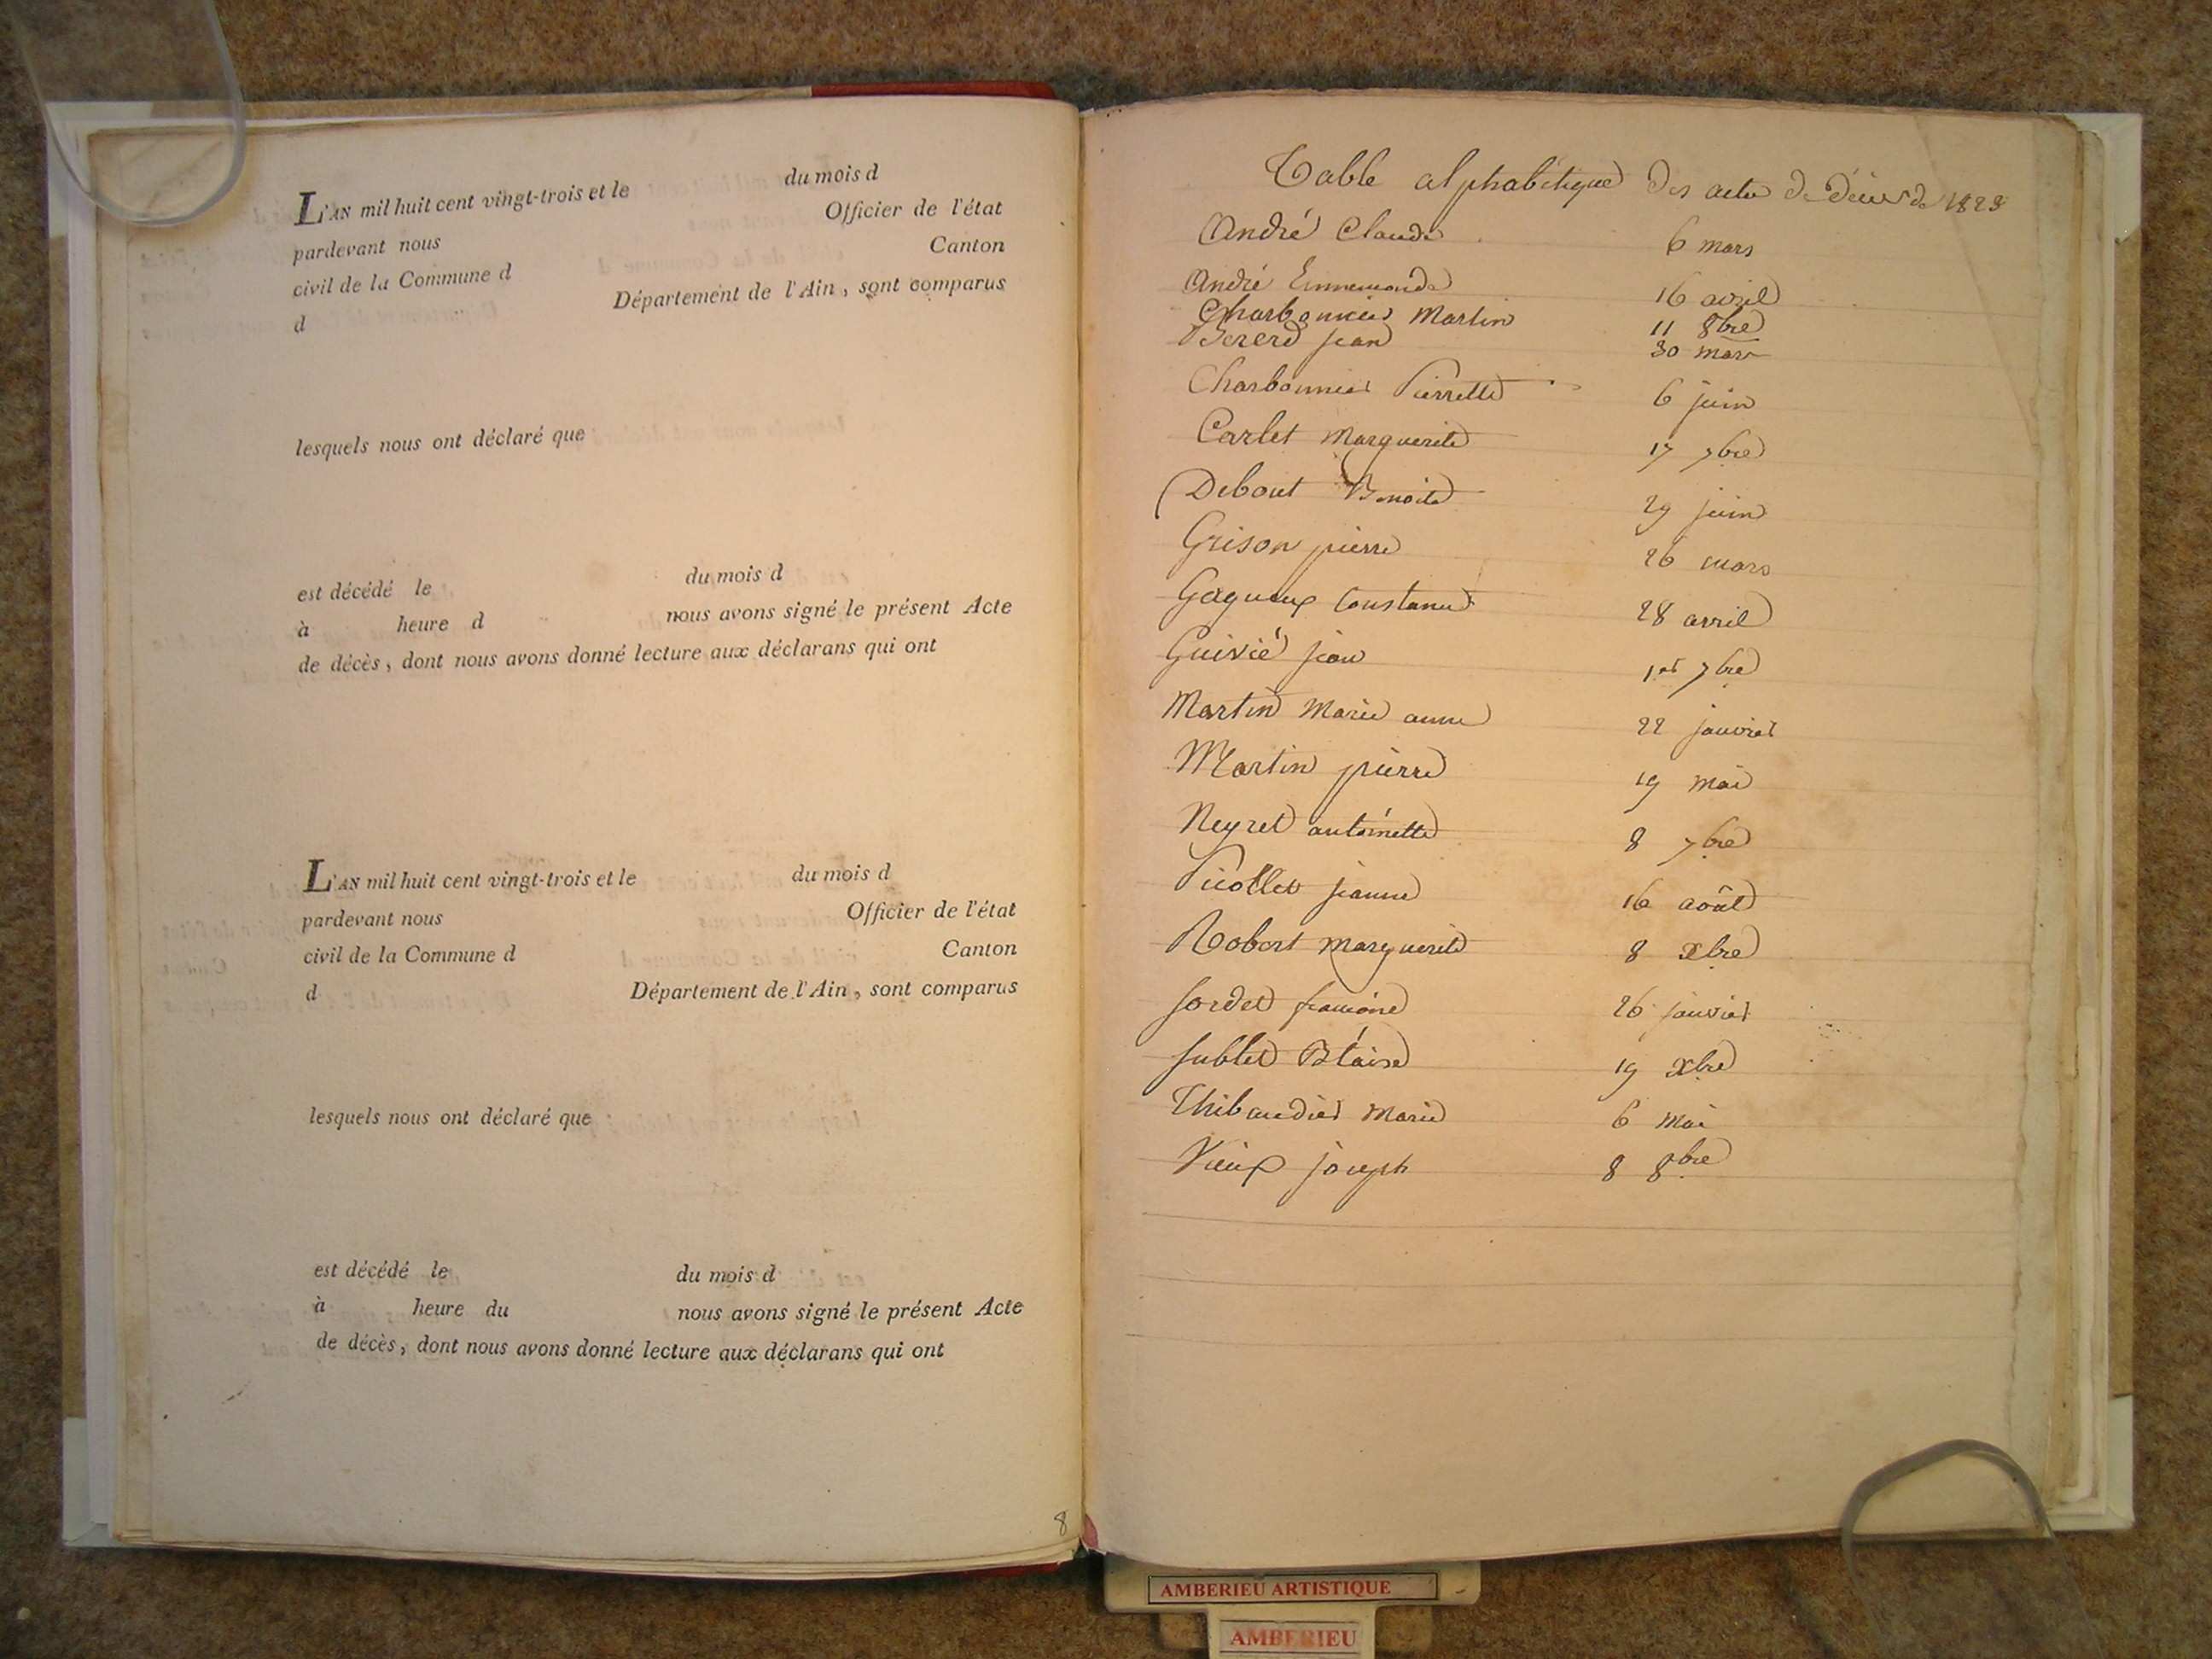 L'AN mil huit cent vingt-trois et le du mois d
pardevant nous Officier de l'état
civil de la Commune d Canton
d Département de l'Ain, sont comparus
lesquels nous ont déclaré que
est décédé le du mois d
à heure d nous avons signé le présent Acte
de décès, dont nous avons donné lecture aux déclarans qui ont
L'AN mil huit cent vingt-trois et le du mois d
pardevant nous Officier de l'état
civil de la Commune d Canton
d Département de l'Ain, sont comparus
lesquels nous ont déclaré que
est décédé le du mois d
à heure du nous avons signé le présent Acte
de décès, dont nous avons donné lecture aux déclarans qui ont
8
Table alphabétique des actes de décès de 1823
André Claude 6 mars
André Ennemonde 16 avril
Charbonnier Martin 11 8bre
Bererd jean 30 mars
Charbonnier Pierrette 6 juin
Carlet Marguerite 17 7bre
Debout Benoite 29 juin
Grison pierre 26 mars
Gagneux Constance 28 avril
Guivié jean 1er 7bre
Martin Marie anne 22 janvier
Martin pierre 19 mai
Neyret antoinette 8 7bre
Picollet jeanne 16 août
Robert Marguerite 8 xbre
Sordet françoise 26 janvier
Sublet Blaise 19 xbre
Thibaudier Marie 6 mai
Vieux joseph 8 8bre
AMBERIEU ARTISTIQUE
AMBERIEU